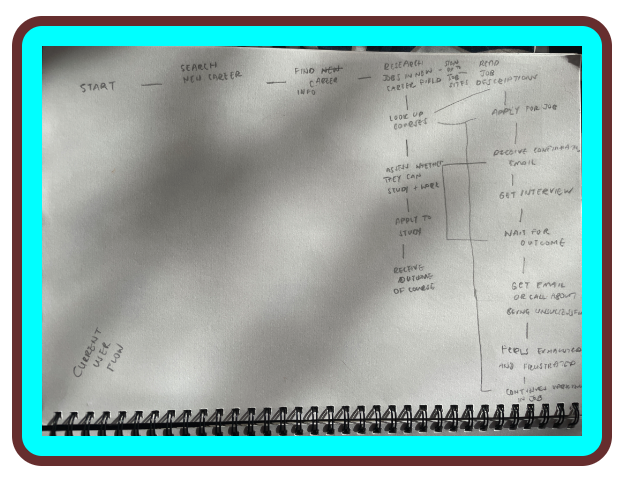 START
SEARCH
NEW CAREER
FIND NEW
CAREER
INFO
RESEARCH
JOBS IN NEW
CAREER FIELD
SIGN
JOB
SITES
READ
JOB
DESCRIPTIONS
LOOK UP
COURSES
ASSESS WHETHER
THEY CAN
STUDY + WORK
APPLY TO
STUDY
RECEIVE
OUTCOME
OF COURSE
APPLY FOR JOB
RECEIVE
EMAIL
GET INTERVIEW
WAIT FOR
OUTCOME
GET EMAIL
OR CALL ABOUT
BEING
FEELS
AND FRUSTRATED
IN JOB
CURRENT
USER
FLOW